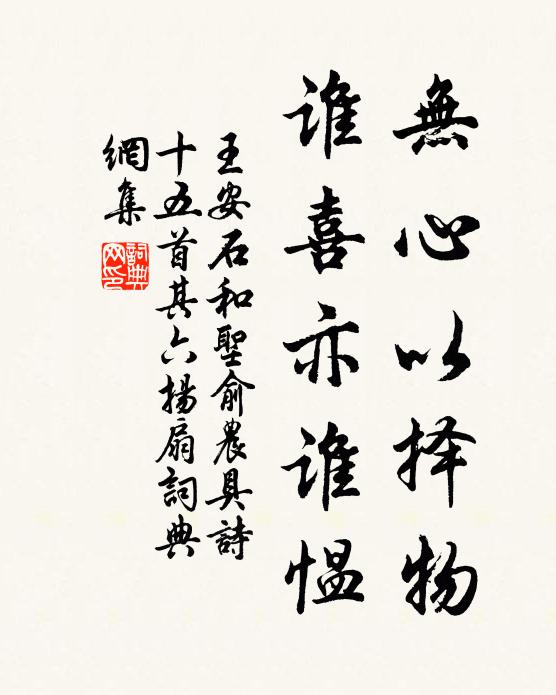 無心以择物
谁喜亦谁愠
王安石和聖俞農具詩
十五首其六揚扇詞典
網集
詞典
网印